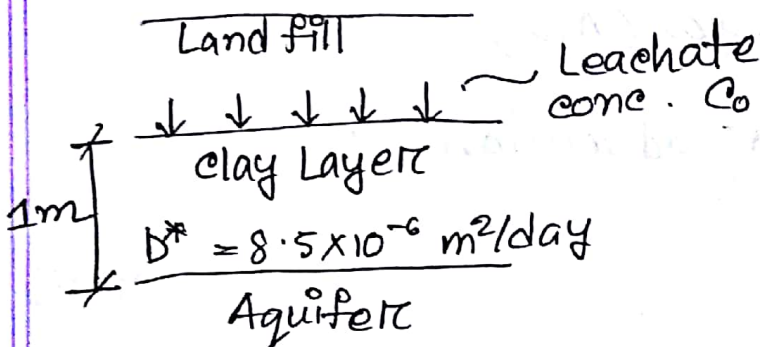 Land fill
Leachate
conc. Co
clay Layer
1m
D* = 8.5×10⁻⁶ m²/day
Aquifer